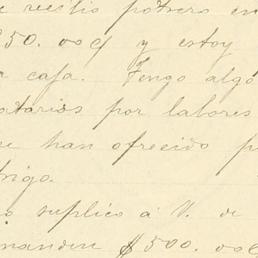 e vestio potrero en
$50.00 y estoy
a casa. Tengo algo
otarios por labores
ue han ofrecido p
trigo.
o suplico á V. de
mandem $500.00